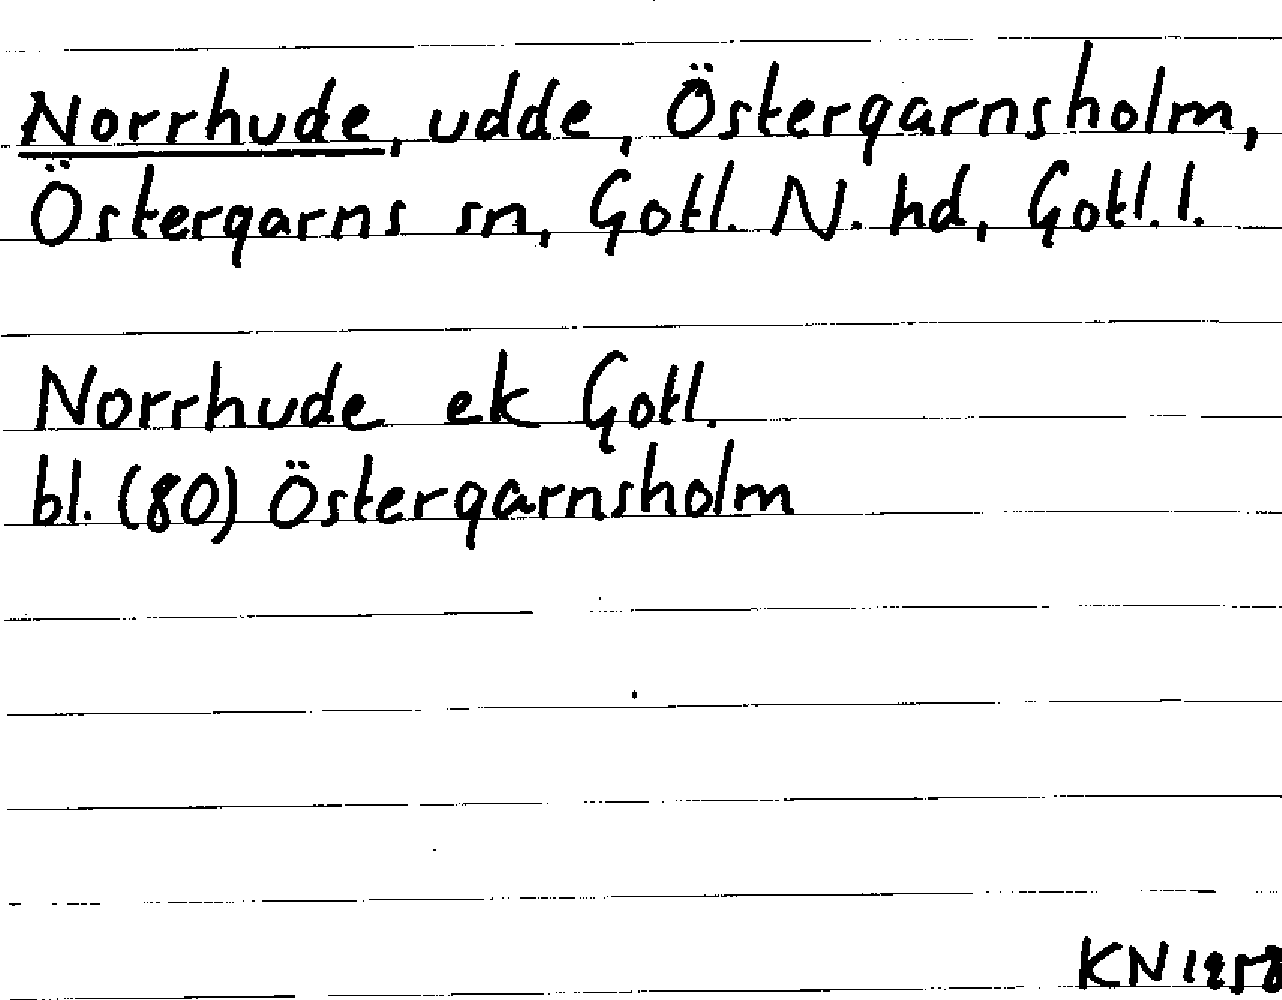 Norrhude, udde, Östergarnsholm,
Östergarns sn, Gotl. N. hd, Gotl. l.
Norrhude ek Gotl.
bl. (80) Östergarnsholm
KN 1958